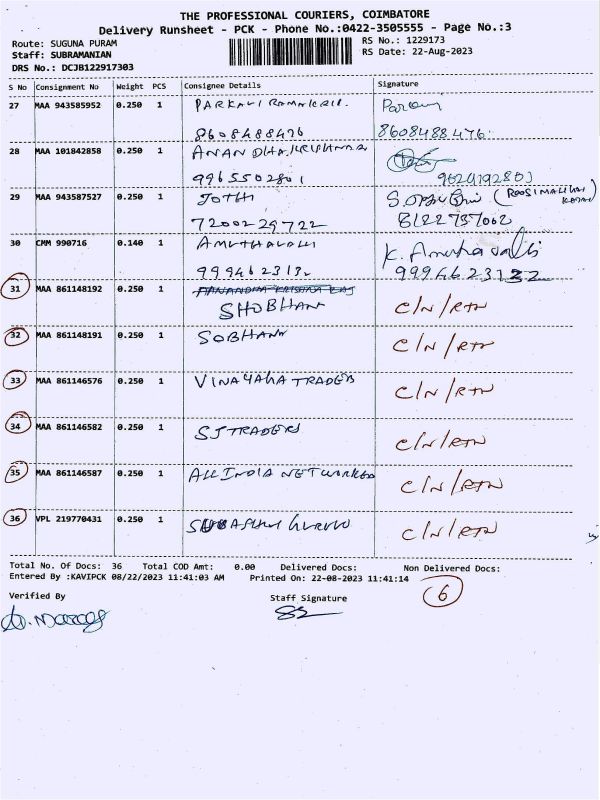 THE PROFESSIONAL COURIERS, COIMBATORE
Delivery Runsheet - PCK - Phone No.:0422-3505555 - Page No.:3
Route: SUGUNA PURAM RS No.: 1229173
Staff: SUBRAMANIAN RS Date: 22-Aug-2023
DRS No.: DCJB122917303
S No Consignment No Weight PCS Consignee Details Signature
27 MAA 943585952 0.250 1
8608488476 8608488476
28 MAA 101842858 0.250 1
9965502801
29 MAA 943587527 0.250 1 JOTHI
7200229722 8122737062
30 CMM 990716 0.140 1 AMUTHAVALLI K. Amuthavalli
9994623132 9994623132
31 MAA 861148192 0.250 1
SHOBHANA C/N/RTN
32 MAA 861148191 0.250 1 SOBHANA C/N/RTN
33 MAA 861146576 0.250 1 VINAYAKA TRADERS C/N/RTN
34 MAA 861146582 0.250 1 SJ TRADERS C/N/RTN
35 MAA 861146587 0.250 1 ALL INDIA NETWORKED C/N/RTN
36 VPL 219770431 0.250 1 C/N/RTN
Total No. Of Docs: 36 Total COD Amt: 0.00 Delivered Docs: Non Delivered Docs:
Entered By :KAVIPCK 08/22/2023 11:41:03 AM Printed On: 22-08-2023 11:41:14
6
Verified By Staff Signature